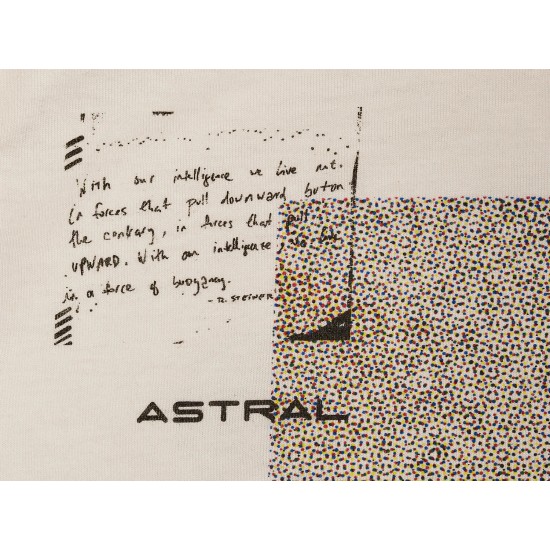 With our intelligence we live not.
in forces that pull downward but on
the contrary, in forces that pull
UPWARD. With our intelligence, we live
in a force of buoyancy.
- R. STEINER
ASTRAL